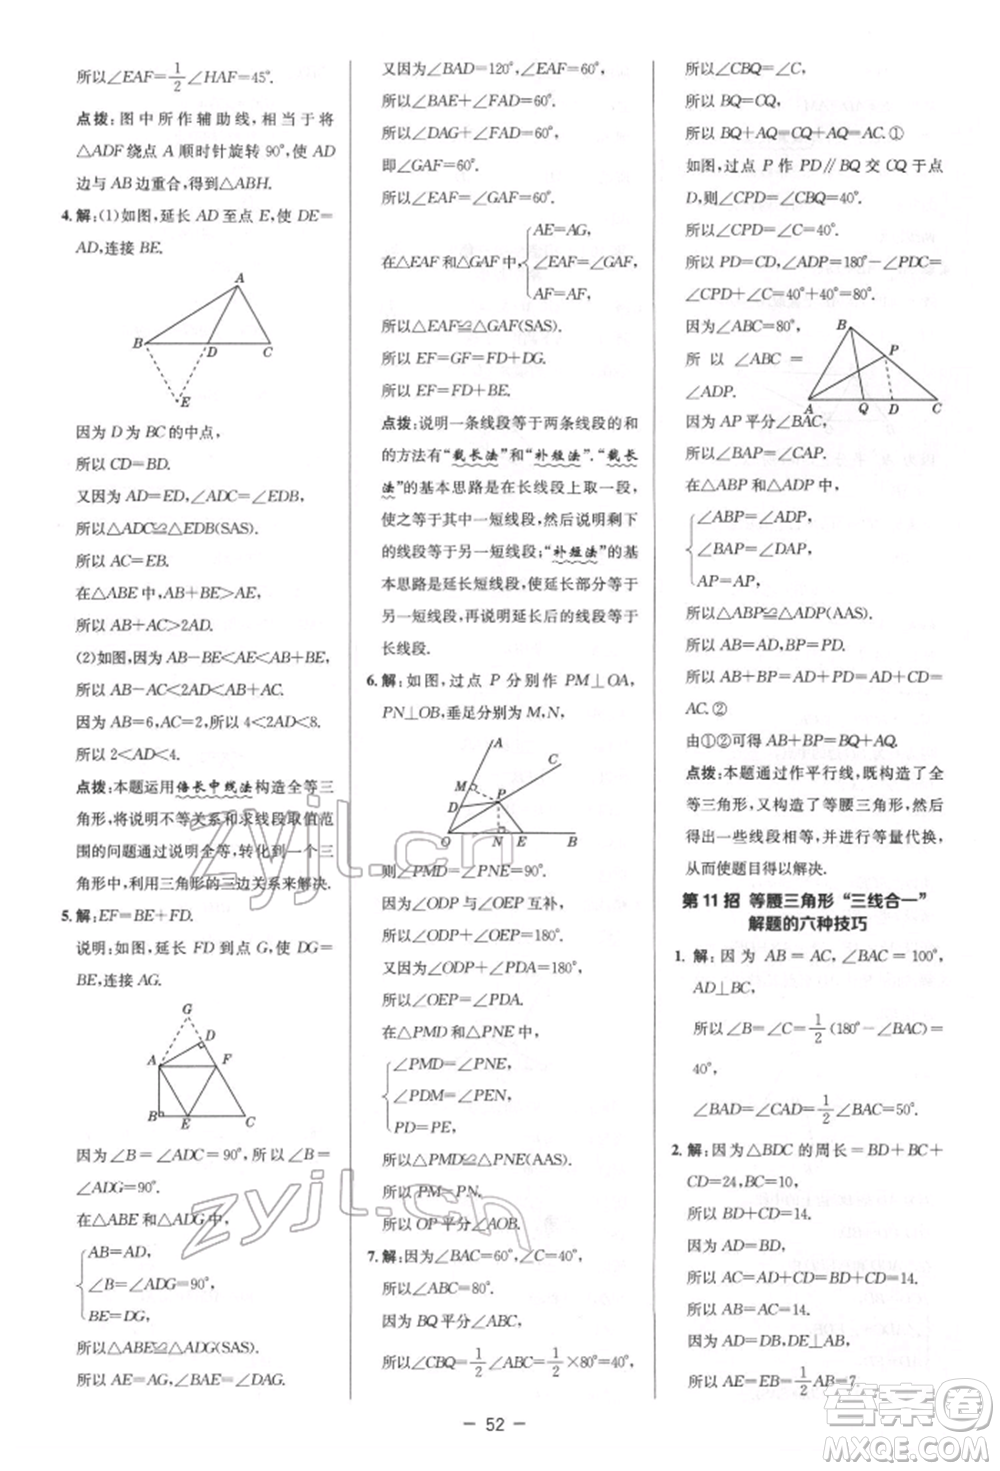 所以∠EAF=1/2∠HAF=45°.
点拨:图中所作辅助线,相当于将
△ADF绕点A顺时针旋转90°,使AD
边与AB边重合,得到△ABH.
4.解:(1)如图,延长AD至点E,使DE=
AD,连接BE.
A
B
D
C
E
因为D为BC的中点,
所以CD=BD.
又因为AD=ED,∠ADC=∠EDB,
所以△ADC≌△EDB(SAS).
所以AC=EB.
在△ABE中,AB+BE>AE,
所以AB+AC>2AD.
(2)如图,因为AB-BE<AE<AB+BE,
所以AB-AC<2AD<AB+AC.
因为AB=6,AC=2,所以4<2AD<8.
所以2<AD<4.
点拨:本题运用倍长中线法构造全等三
角形,将说明不等关系和求线段取值范
围的问题通过说明全等,转化到一个三
角形中,利用三角形的三边关系来解决.
5.解:EF=BE+FD.
说明:如图,延长FD到点G,使DG=
BE,连接AG.
G
D
A
F
B
E
C
因为∠B=∠ADC=90°,所以∠B=
∠ADG=90°.
在△ABE和△ADG中,
AB=AD,
∠B=∠ADG=90°,
BE=DG,
所以△ABE≌△ADG(SAS).
所以AE=AG,∠BAE=∠DAG.
又因为∠BAD=120°,∠EAF=60°,
所以∠BAE+∠FAD=60°.
所以∠DAG+∠FAD=60°.
即∠GAF=60°.
所以∠EAF=∠GAF=60°.
AE=AG,
在△EAF和△GAF中,∠EAF=∠GAF,
AF=AF,
所以△EAF≌△GAF(SAS).
所以EF=GF=FD+DG.
所以EF=FD+BE.
点拨:说明一条线段等于两条线段的和
的方法有“截长法”和“补短法”.“截长
法”的基本思路是在长线段上取一段,
使之等于其中一短线段,然后说明剩下
的线段等于另一短线段;“补短法”的基
本思路是延长短线段,使延长部分等于
另一短线段,再说明延长后的线段等于
长线段.
6.解:如图,过点P分别作PM⊥OA,
PN⊥OB,垂足分别为M,N,
A
C
M
D
P
O
N
E
B
则∠PMD=∠PNE=90°.
因为∠ODP与∠OEP互补,
所以∠ODP+∠OEP=180°.
又因为∠ODP+∠PDA=180°,
所以∠OEP=∠PDA.
在△PMD和△PNE中,
∠PMD=∠PNE,
∠PDM=∠PEN,
PD=PE,
所以△PMD≌△PNE(AAS).
所以PM=PN.
所以OP平分∠AOB.
7.解:因为∠BAC=60°,∠C=40°,
所以∠ABC=80°.
因为BQ平分∠ABC,
所以∠CBQ=1/2∠ABC=1/2×80°=40°,
所以∠CBQ=∠C,
所以BQ=CQ,
所以BQ+AQ=CQ+AQ=AC.①
如图,过点P作PD∥BQ交CQ于点
D,则∠CPD=∠CBQ=40°.
所以∠CPD=∠C=40°.
所以PD=CD,∠ADP=180°-∠PDC=
∠CPD+∠C=40°+40°=80°.
因为∠ABC=80°,
所以∠ABC=
∠ADP.
B
P
A
Q
D
C
因为AP平分∠BAC,
所以∠BAP=∠CAP.
在△ABP和△ADP中,
∠ABP=∠ADP,
∠BAP=∠DAP,
AP=AP,
所以△ABP≌△ADP(AAS).
所以AB=AD,BP=PD.
所以AB+BP=AD+PD=AD+CD=
AC.②
由①②可得AB+BP=BQ+AQ.
点拨:本题通过作平行线,既构造了全
等三角形,又构造了等腰三角形,然后
得出一些线段相等,并进行等量代换,
从而使题目得以解决.
第11招 等腰三角形“三线合一”
解题的六种技巧
1.解:因为AB=AC,∠BAC=100°,
AD⊥BC,
所以∠B=∠C=1/2(180°-∠BAC)=
40°,
∠BAD=∠CAD=1/2∠BAC=50°.
2.解:因为△BDC的周长=BD+BC+
CD=24,BC=10,
所以BD+CD=14.
因为AD=BD,
所以AC=AD+CD=BD+CD=14.
所以AB=AC=14.
因为AD=DB,DE⊥AB,
所以AE=EB=1/2AB=7.
- 52 -
zyjl.cn
zyjl.cn
答案圈
MXQE.COM